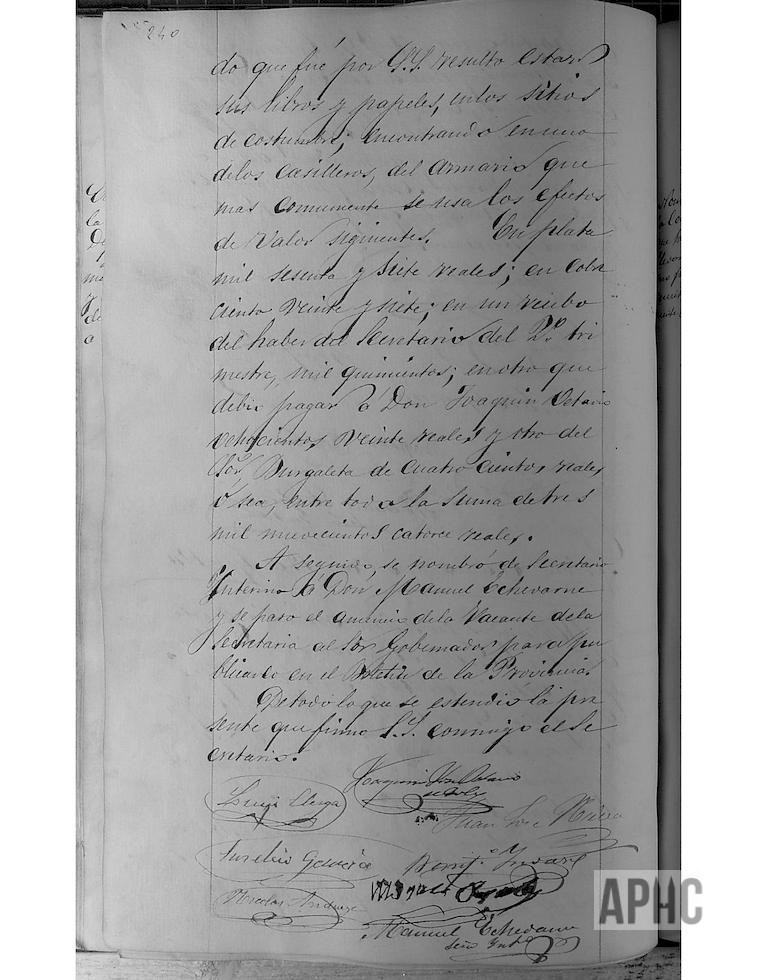 240
do que fué por S.S. resulto estar
sus libros y papeles, en los sitios
de costumbre; encontrando en uno
de los casilleros, del armario que
mas comunmente se usa los efectos
de valor siguientes. En plata
mil sesenta y siete reales; en cobre
ciento veinte y siete; en un recibo
del haber del Secretario del 2º tri
mestre, mil quinientos; en otro que
debio pagar a Don Joaquin Octavio
ochocientos veinte reales y otro del
Sor. Burgaleta de cuatrocientos reales
ó sea, entre todo a la suma de tres
mil nuevecientos catorce reales.
A seguido, se nombró de Secretario
Interino á Don Manuel Echevarne
y se paso el anuncio de la Vacante de la
Secretaria al Sor Gobernador para pu
blicarlo en el Boletin de la Provincia.
De todo lo que se estendió la pre
sente que firmo S.S. conmigo el Se
cretario.
Joaquin
Luis
Juan José
Aurelio
Nicolas
Manuel Echevarne
Srio Intº
APHC